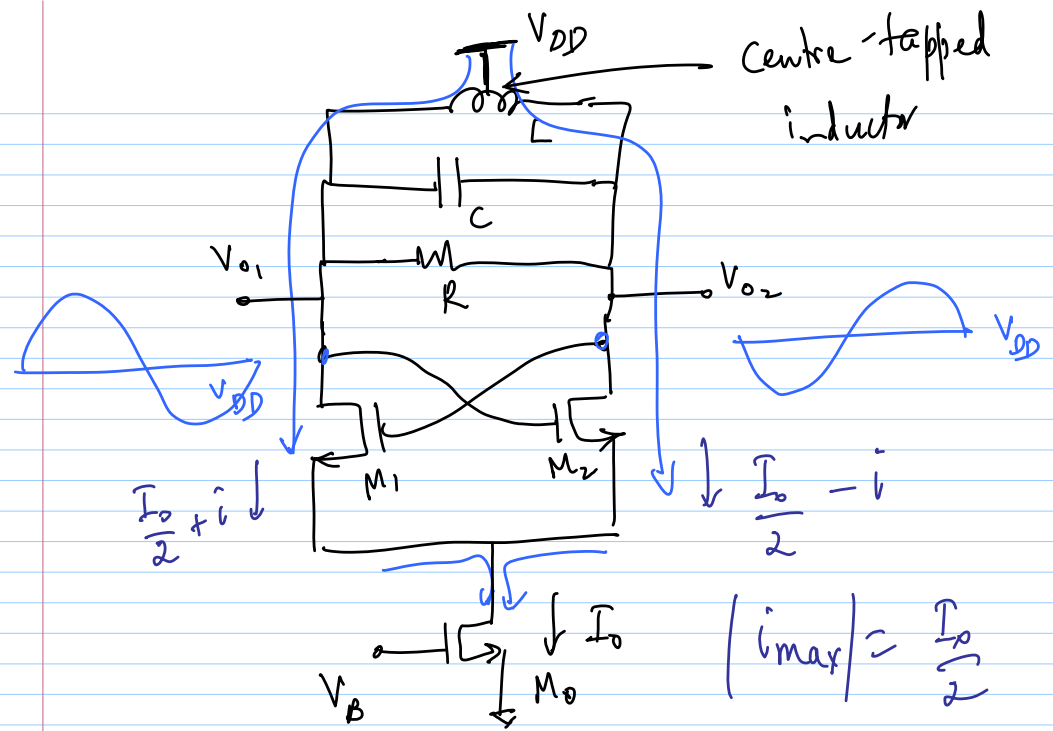 V_DD
Centre-tapped
inductor
L
C
R
V_o1
V_o2
V_DD
V_DD
M_1
M_2
I_o/2 + i ↓
↓ I_o/2 - i
↓ I_o
M_0
V_B
|i_max| = I_o/2